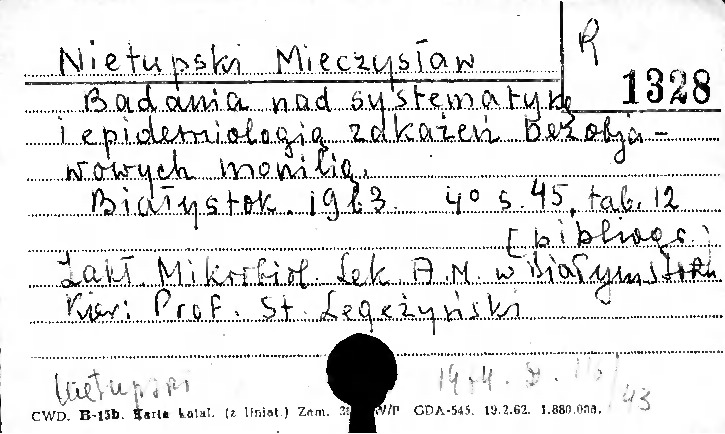 Nietupski Mieczysław
R
1328
Badania nad systematyką
i epidemiologią zakażeń bezobja-
wowych monilią.
Białystok. 1963. 4° s. 45, tab. 12
[bibliogr.]
Zakł. Mikrobiol. Lek A.M. w Białymstoku
Kier: Prof. St. Legeżyński
Nietupski
CWD. B-15b. Karta katal. (z liniat.) Zam. W/P GDA-545. 19.2.62. 1.880.000.